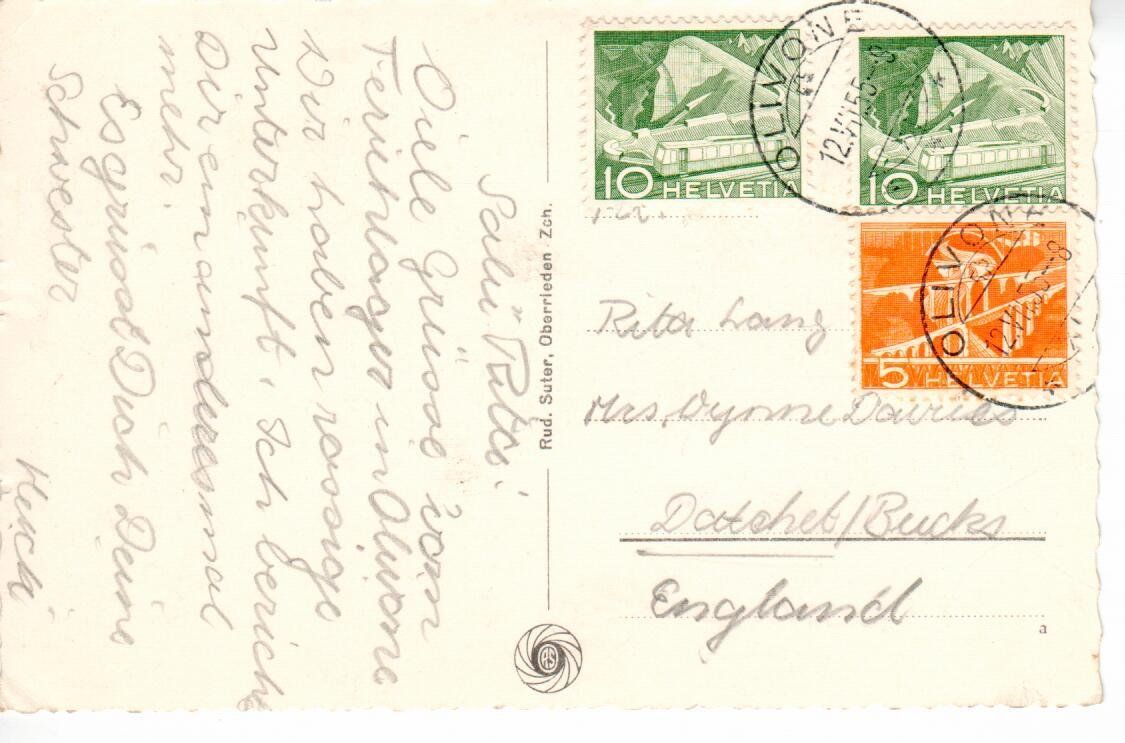 Salü Rita!
Viele Grüsse vom
Ferienlager in Olivone
Wir haben rassige
Unterkunft, Ich bericht
Dir ein anderesmal
mehr.
Es grüsst Dich Deine
Schwester
Rud. Suter, Oberrieden Zch.
10 HELVETIA
10 HELVETIA
5 HELVETIA
OLIVONE
OLIVONE
Rita Lang
Mrs. Wynne Davies
Datchet/Bucks
England
a